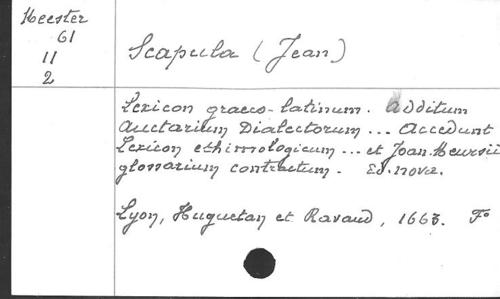 Heester
61
11
2
Scapula (Jean)
Lexicon graeco-latinum. Additum
Auctarium Dialectorum ... Accedunt
Lexicon ethimologicum ... et Joan. Meursii
glossarium contractum. Ed. nova.
Lyon, Huguetan et Ravaud, 1663. F°